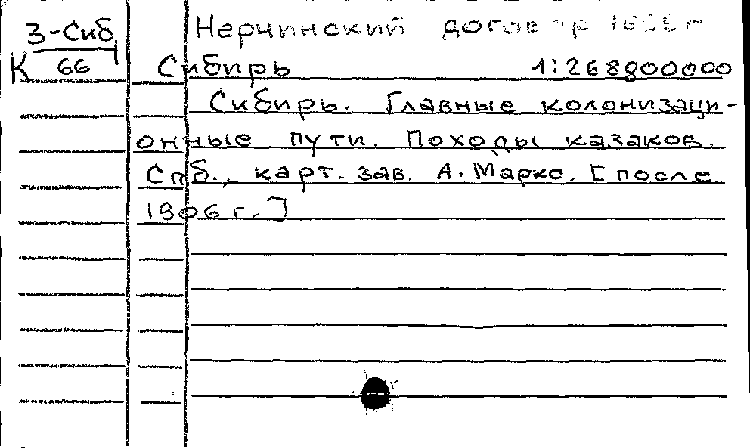 З-Сиб Нерчинский договор
К 66 Сибирь 1:268800000
Сибирь. Главные колонизаци-
онные пути. Походы казаков.
Спб., карт. зав. А. Маркс. [после
1906 г.]